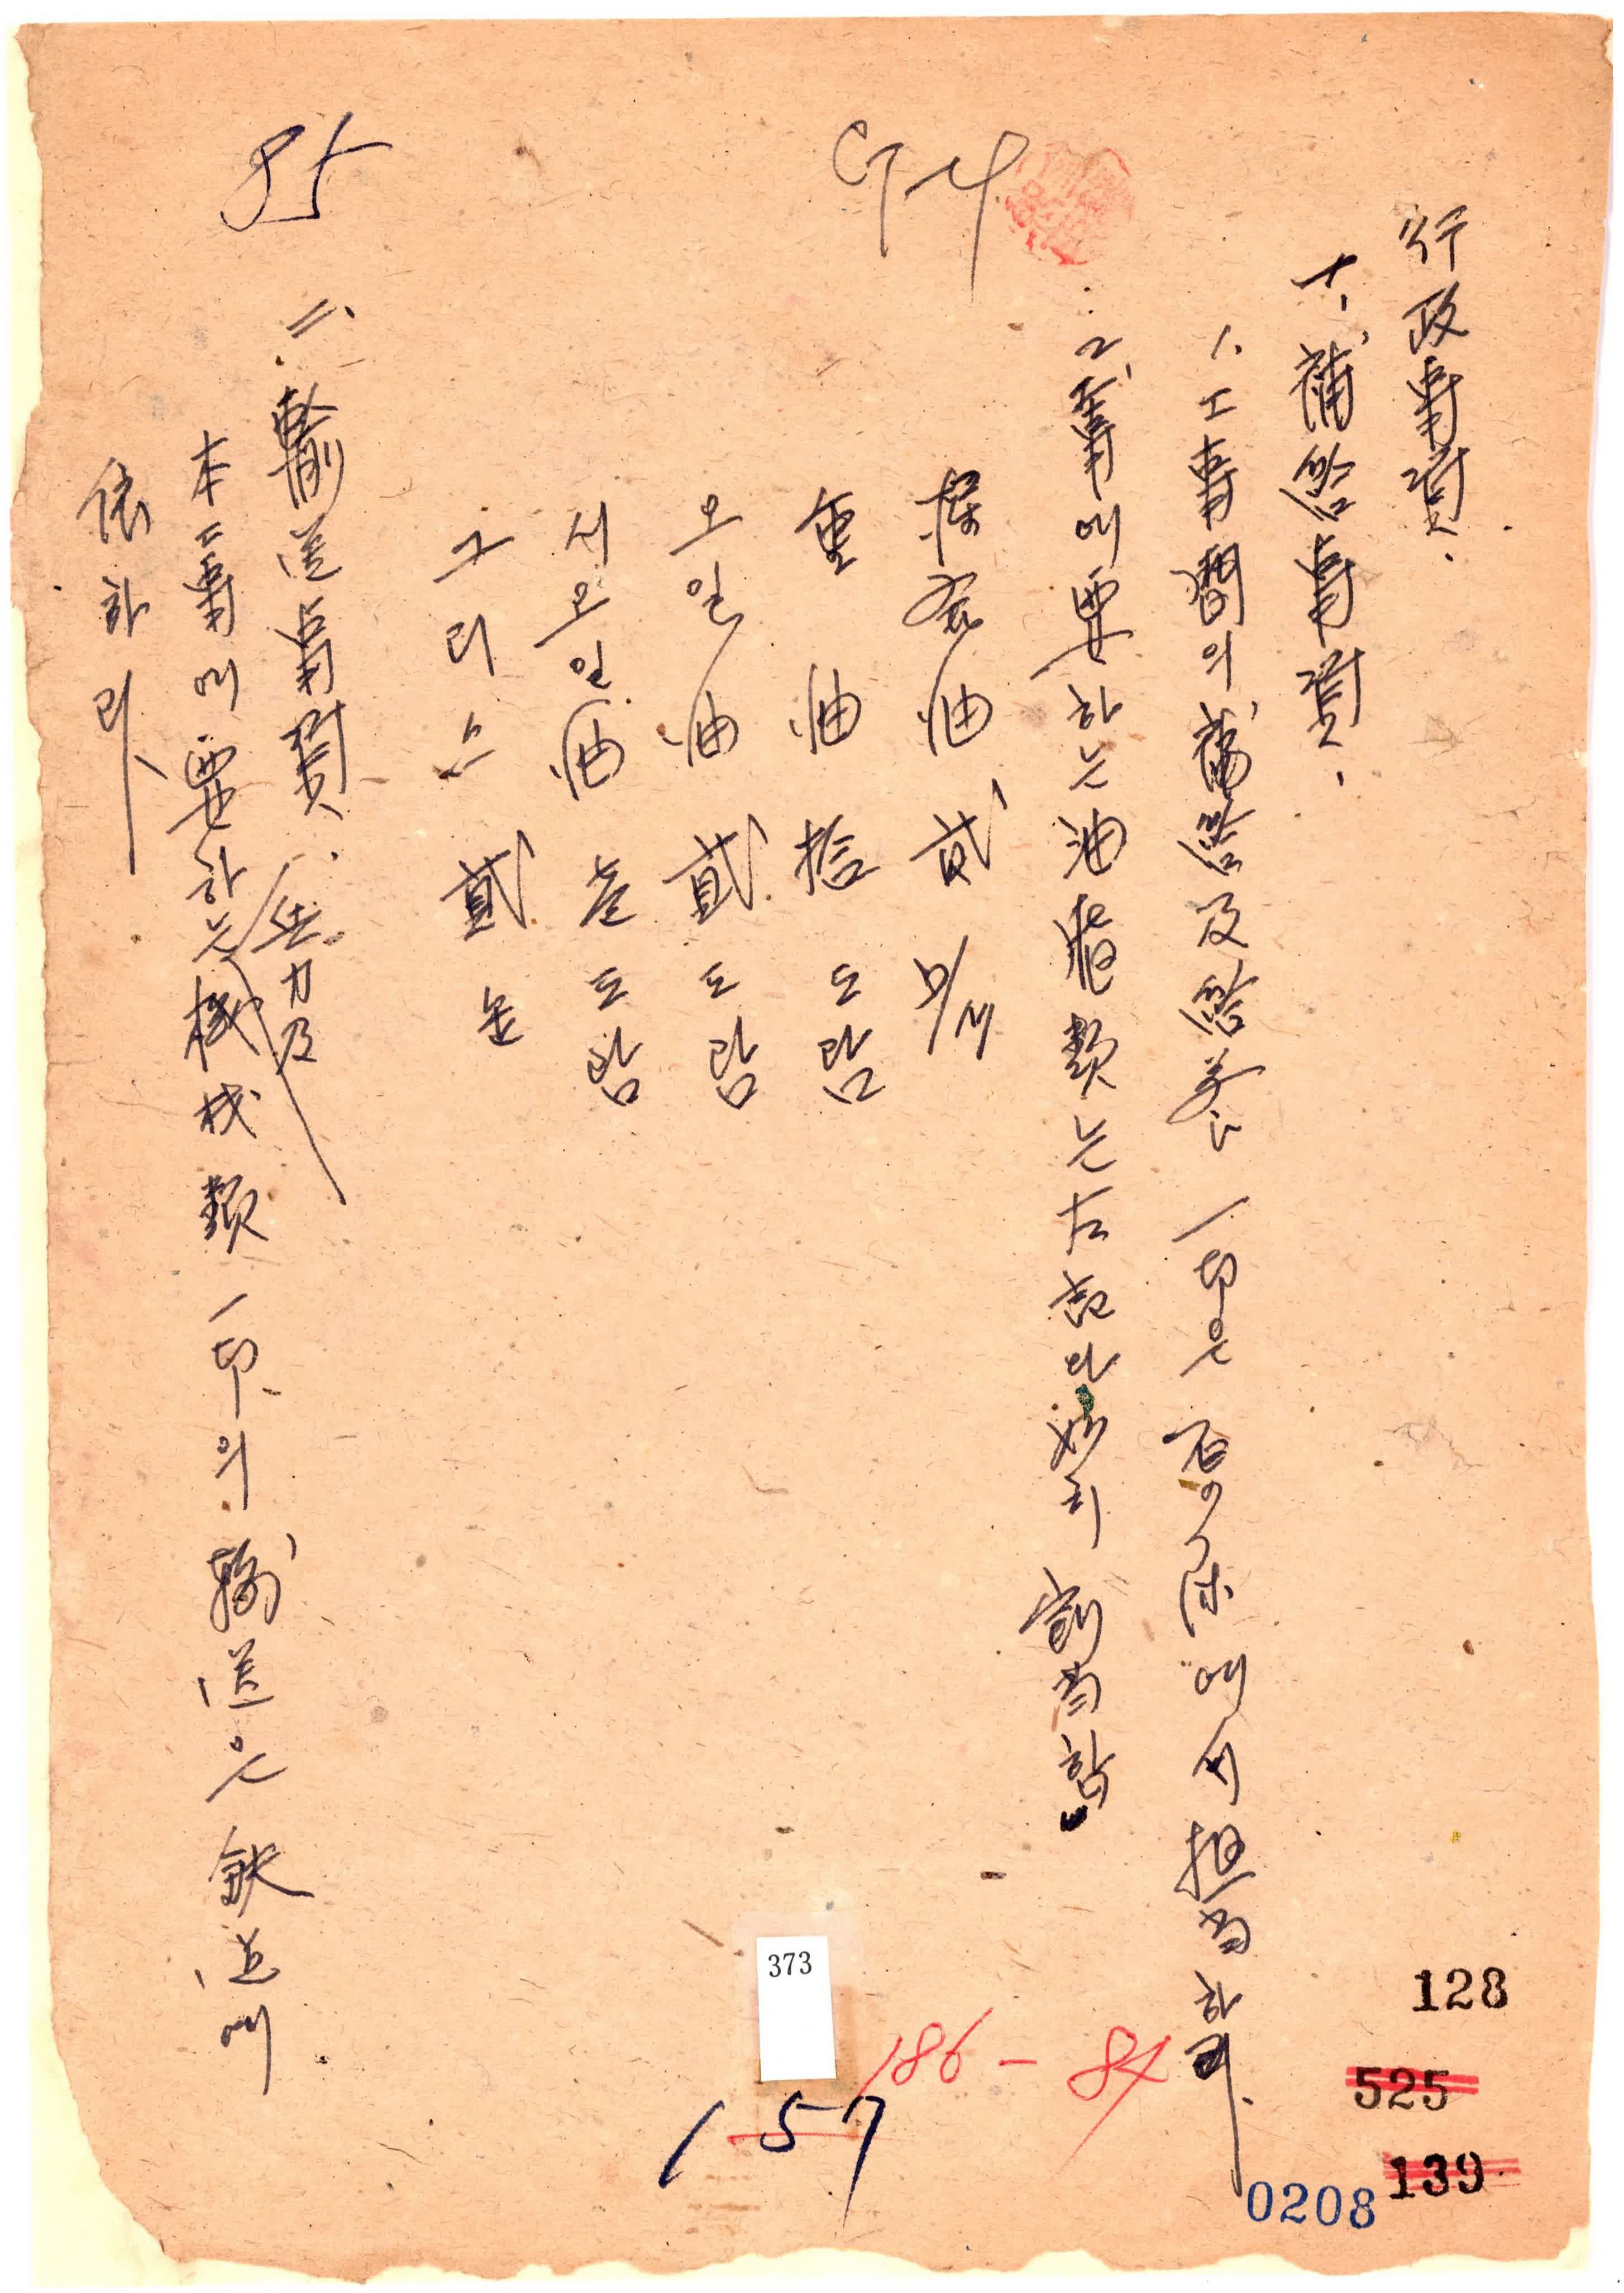 行政事項.
十、補給事項.
1. 工事間의 補給及給養은 一切은 에서 担當하며
2. 工事에 要하는 油脂類는 左記와 如히 割當함
揮発油 貳
重油 拾도람
모일油 貳도람
시모일油 壱도람
그리스 貳
二、輸送事項.
本工事에 要하는 機材類 一切의 輸送은 鉄道에
依하며
84
85
373
186-84
157
128
525
139
0208